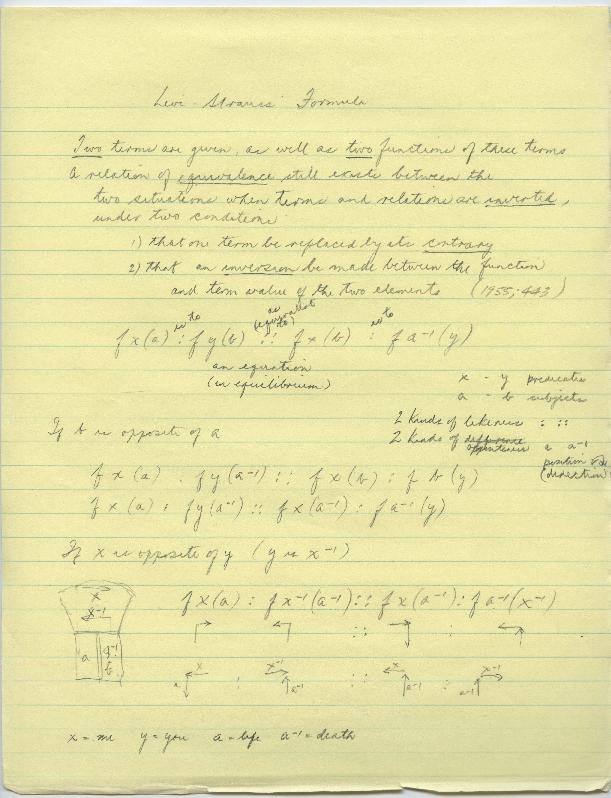 Levi-Strauss' Formula
Two terms are given, as well as two functions of these terms
A relation of equivalence still exists between the
two situations when terms and relations are inverted,
under two conditions
1) that one term be replaced by its contrary
2) that an inversion be made between the function
and term value of the two elements (1955; 443)
is to as (equivalent to) is to
fx(a) : fy(b) :: fx(b) : fa-1(y)
an equation
(in equilibrium)
x - y predicates
a - b subjects
2 kinds of likeness : ::
2 kinds of difference a a-1
position
(direction)
If b is opposite of a
fx(a) : fy(a-1) :: fx(b) : fb(y)
fx(a) : fy(a-1) :: fx(a-1) : fa-1(y)
If x is opposite of y (y is x-1)
x
x-1
a a-1
b
fx(a) : fx-1(a-1) :: fx(a-1) : fa-1(x-1)
: :: :
x x-1 x x-1
a : a-1 :: a-1 : a-1
x = me y = you a = life a-1 = death